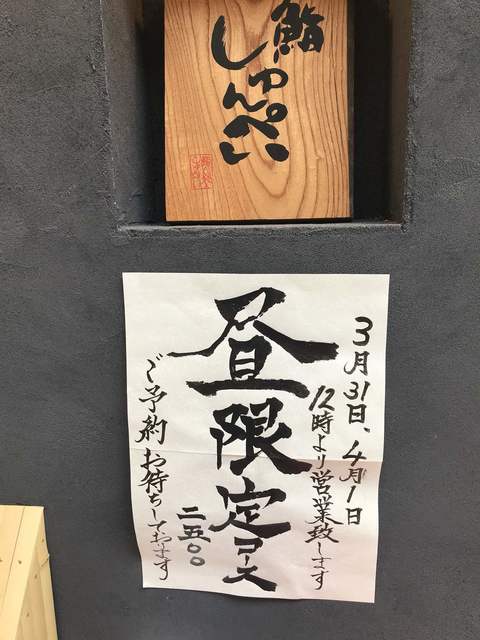 鮨
しゅんぺい
3月31日、4月1日
12時より営業致します
昼限定コース
二五〇〇
ご予約お待ちしております